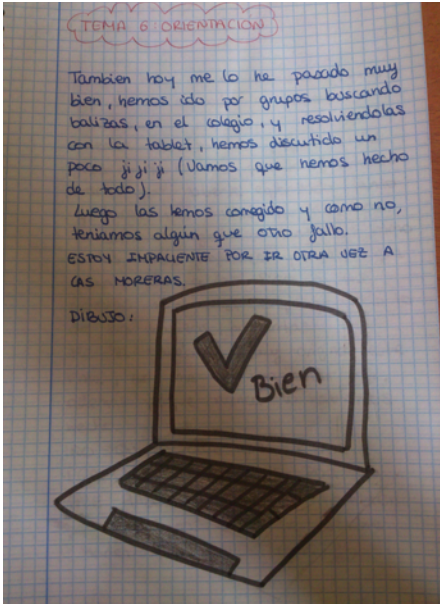 TEMA 6: ORIENTACION
Tambien hoy me lo he pasado muy
bien, hemos ido por grupos buscando
balizas, en el colegio, y resolviendolas
con la tablet, hemos discutido un
poco ji ji ji (Vamos que hemos hecho
de todo).
Luego las hemos corregido y como no,
teniamos algún que otro fallo.
ESTOY IMPACIENTE POR IR OTRA VEZ A
LAS MORERAS.
DIBUJO:
Bien